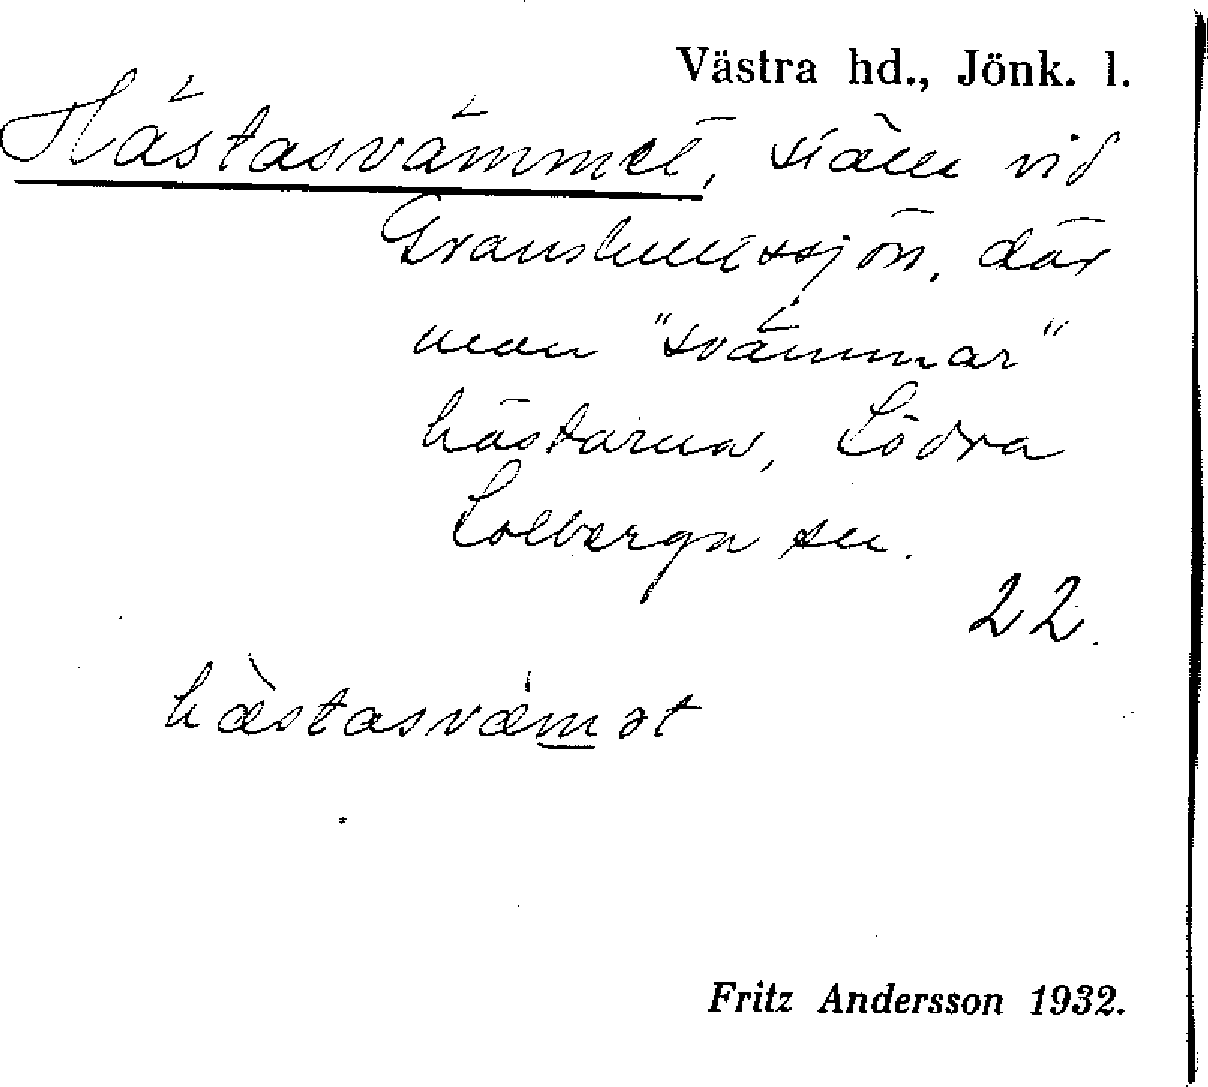 Västra hd., Jönk. l.
Hästasvämmet, ställe vid
Granshultssjön, där
man "svämmar"
hästarna, Södra
Solberga sn.
22.
hæ̀stasvæmət
Fritz Andersson 1932.